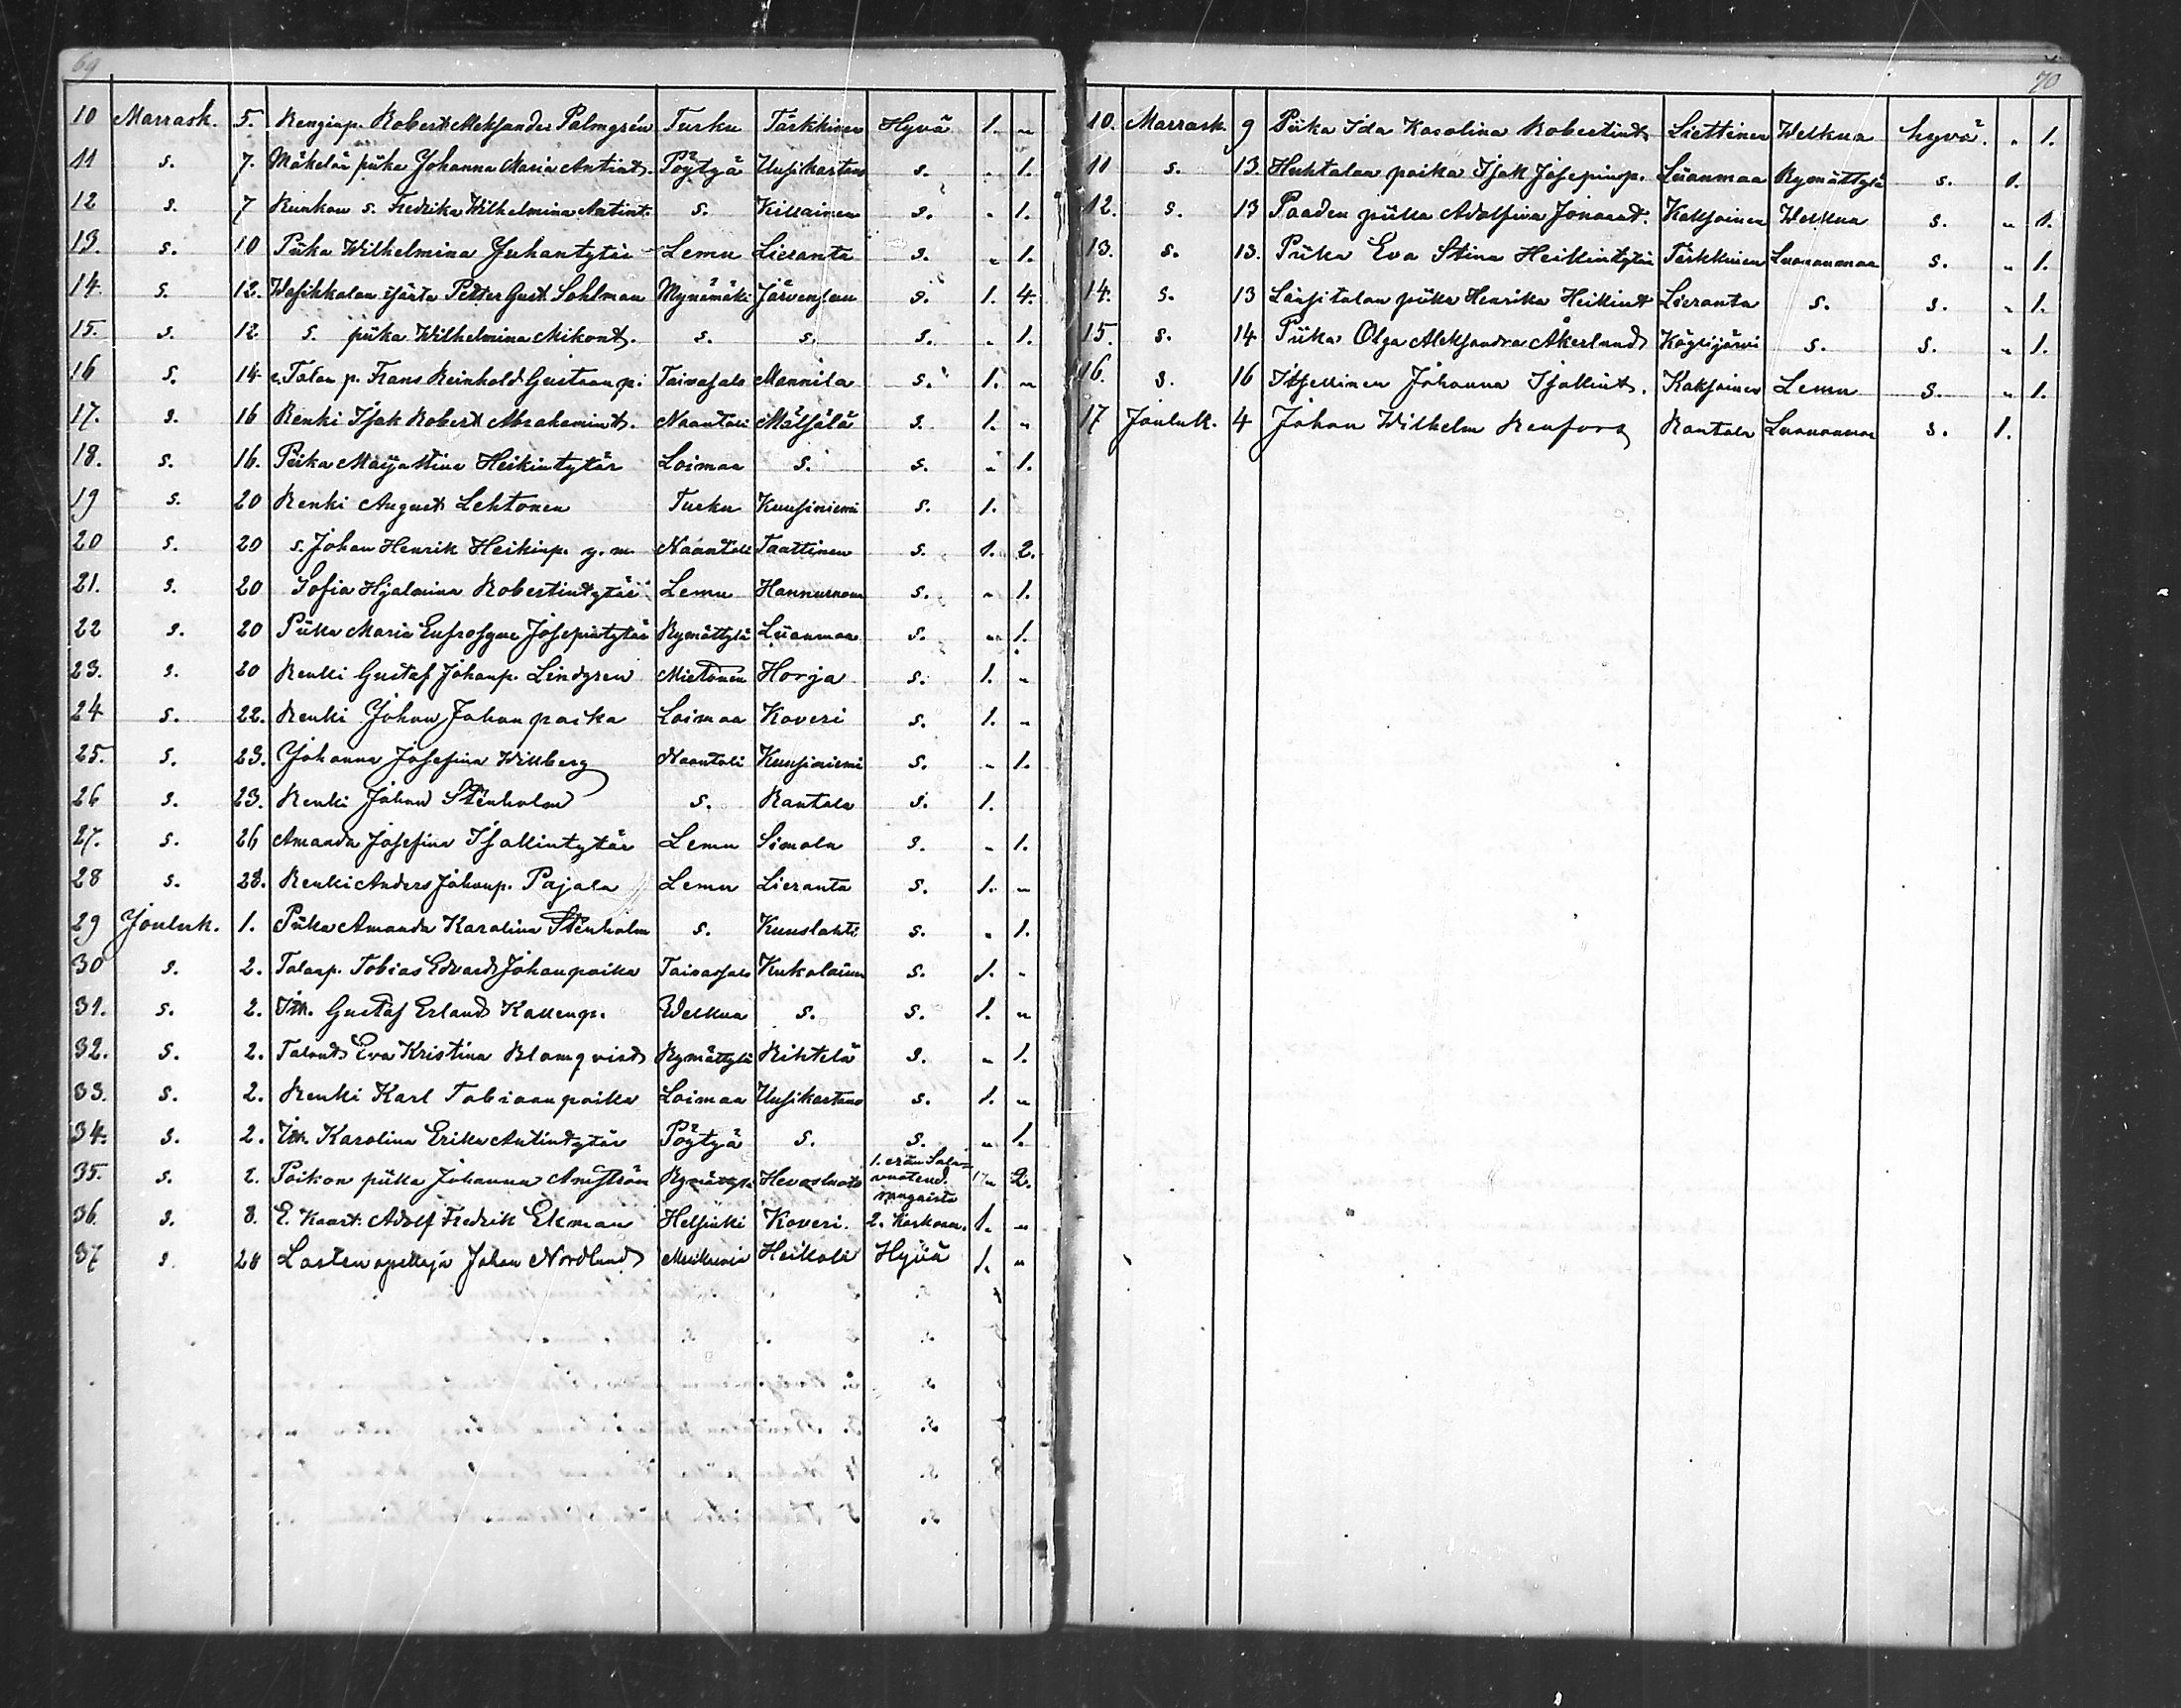 69
10 Marrask. 5. Renginp. Robert Aleksander Palmgrén Turku Tärkkinen Hyvä 1. "
11 s. 7. Mäkelän piika Johanna Maria Antint. Pöytyä Uusikartano s. " 1.
12 s. 7 Kunkon s. Fredrika Wilhelmina Antint. s. Killainen s. " 1.
13. s. 10 Piika Wilhelmina Juhantytär Lemu Lieranta s. " 1.
14. s. 12. isäntä Petter Gust. Sahlman Mynämäki Järvensuu s. 1. 4.
15. s. 12 s. piika Wilhelmina Mikont. s. s. s. " 1.
16 s. 14 Talon p. Frans Reinhold Gustaan p. Taivasalo Mannila s. 1. "
17. s. 16 Renki Isak Robert Abrahamint. Naantali Mälsälä s. 1. "
18. s. 16. Piika Maija Stina Heikintytär Loimaa s. s. " 1.
19 s. 20 Renki August Lehtonen Turku Kuusiniemi s. 1.
20 s. 20 s. Johan Henrik Heikinp. y. m. Naantali Taattinen s. 1. 2.
21. s. 20 Sofia Hjalmina Robertintytär Lemu s. " 1.
22 s. 20 Piika Maria Eufrosyne Josepintytär Rymättylä Liianmaa s. " 1.
23. s. 20 Renki Gustaf Johanp. Lindgren Mietonen Horja s. 1. "
24 s. 22. Renki Johan Johanpoika Loimaa Koveri s. 1. "
25. s. 23. Johanna Josefina Willberg Naantali Kuusiniemi s. " 1.
26 s. 23. Renki Johan Stenholm s. Rantala s. 1.
27. s. 26 Amanda Josefina Isakintytär Lemu Simola s. " 1.
28 s. 28. Renki Anders Johanp. Pajala Lemu Lieranta s. 1. "
29 Jouluk. 1. Piika Amanda Karolina Stenholm s. Kuuslahti s. " 1.
30 s. 2. Talonp. Tobias Edvard Johanpoika Taivassalo Kukolainen s. 1. "
31. s. 2. Itk. Gustaf Erland Kallenp. Welkua s. s. 1. "
32. s. 2. Talont. Eva Kristina Blomqvist Rymättylä Rihtelä s. " 1.
33. s. 2. Renki Karl Tobiaanpoika Loimaa Uusikartano s. 1. "
34. s. 2. Itk. Karolina Erika Antintytär Pöytyä s. s. " 1.
35. s. 2. Poikon piika Johanna Angströn Rymättylä Hevosluoto 1. erän Sala= vuoteud. rangaistu " 2.
36. s. 8. E. Kaart. Adolf Fredrik Ekman Helsinki Koveri. 2. Kerkoan. 1. "
37 s. 28 Lastenopettaja Johan Nordlund Heikola Hyvä 1. "
70
10. Marrask. 9 Piika Ida Karolina Robertint. Liettinen Welkua hyvä. " 1.
11 s. 13. Huhtalan poika Isak Josepinp. Liianmaa Rymättylä s. 1.
12. s. 13 Paaden piika Adolfina Jonaant. Kaksoinen Welkua s. " 1.
13. s. 13. Piika Eva Stina Heikintytär Tärkkinen Luonnonmaa s. " 1.
14. s. 13 Länsitalon piika Henrika Heikint. Lieranta s. s. " 1.
15. s. 14 Piika Olga Aleksandra Åkerlund Köylijärvi s. s. " 1.
16. s. 16 Itsellinen Johanna Isakint. Kaksoinen Lemu s. " 1.
17 Jouluk. 4 Johan Wilhelm Renfors Rantala Luonnonmaa s. 1.